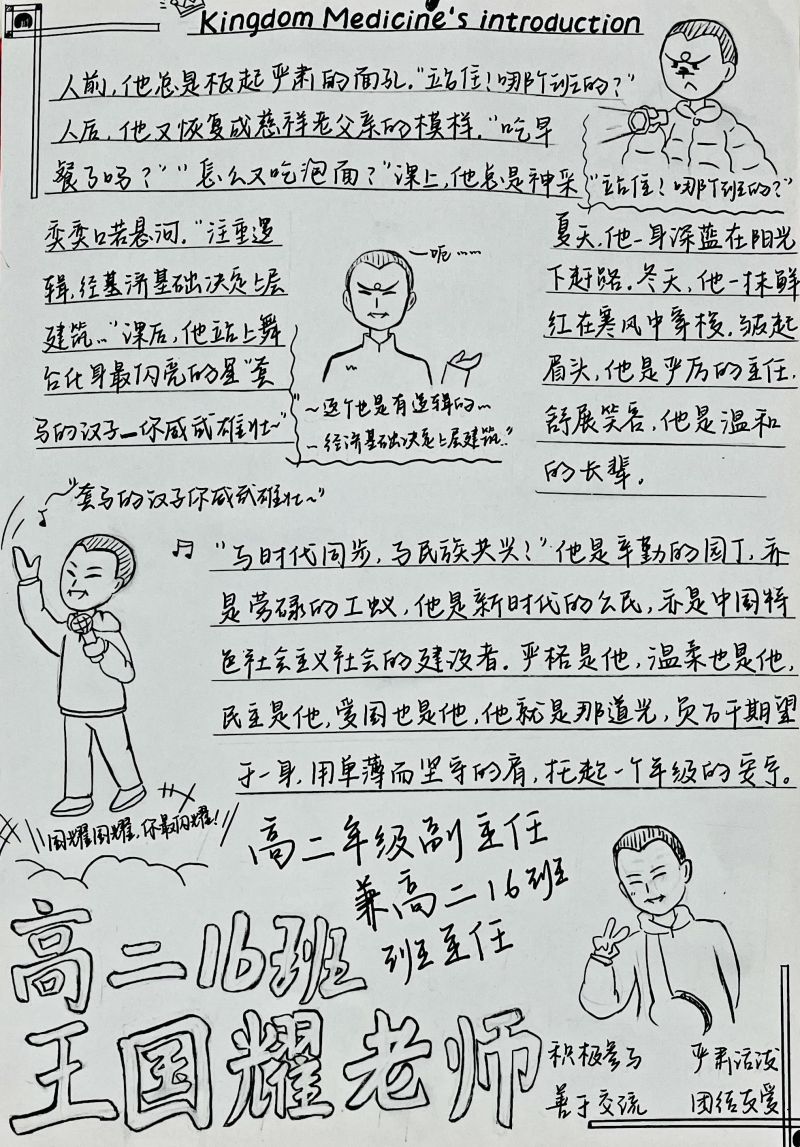 Kingdom Medicine's introduction
人前，他总是板起严肃的面孔。“站住！哪个班的？”
人后，他又恢复成慈祥老父亲的模样。“吃早
餐了吗？”“怎么又吃泡面？”课上，他总是神采
“站住！哪个班的？”
奕奕口若悬河。“注重逻
辑，经基济基础决定上层
建筑…”课后，他站上舞
台化身最闪亮的星“套
马的汉子—你威武雄壮~”
~呃……
“~这个也是有逻辑的…
~经济基础决定上层建筑。”
夏天，他一身深蓝在阳光
下赶路。冬天，他一抹鲜
红在寒风中穿梭。皱起
眉头，他是严厉的主任，
舒展笑容，他是温和
的长辈。
~“套马的汉子你威武雄壮~”
“与时代同步，与民族共兴？”他是辛勤的园丁，亦
是劳碌的工蚁，他是新时代的公民，亦是中国特
色社会主义社会的建设者。严格是他，温柔也是他，
民主是他，爱国也是他，他就是那道光，负万千期望
于一身，用单薄而坚守的肩，托起一个年级的安宁。
国耀国耀，你最闪耀！
高二年级副主任
兼高二16班
班主任
高二16班
王国耀老师
积极参与 严肃活泼
善于交流 团结友爱